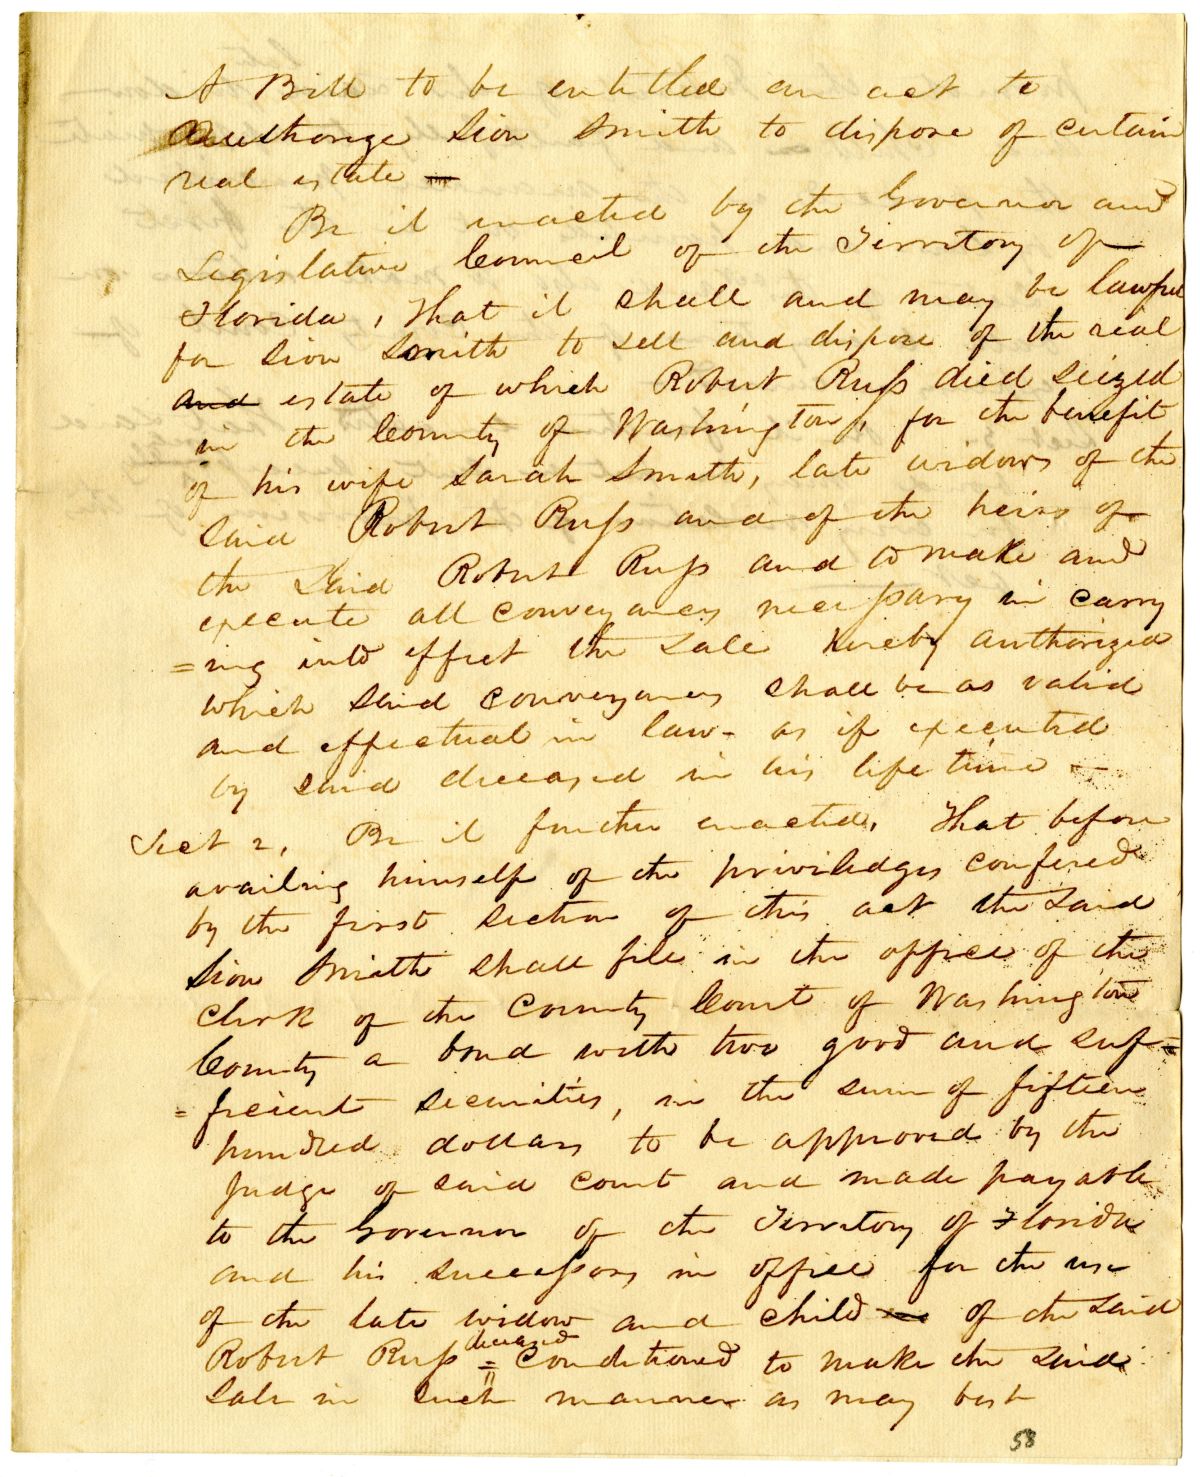 A Bill to be entitled an act to
Authorize Sion Smith to dispose of certain
real estate
Be it enacted by the Governor and
Legislative Council of the Territory of
Florida, That it shall and may be lawful
for Sion Smith to sell and dispose of the real
and estate of which Robert Russ died seized
in the County of Washington, for the benefit
of his wife Sarah Smith, late widow of the
said Robert Russ and of the heirs of
the Said Robert Russ and to make and
execute all conveyances necessary in carry
=ing into effect the Sale hereby authorized
which said conveyances shall be as valid
and effectual in law- as if executed
by said deceased in his life time -
Sect 2, Be it further enacted, That before
availing himself of the priviledges confered
by the first section of this act the Said
Sion Smith shall file in the office of the
Clerk of the County Court of Washington
County a bond with two good and suf=
=ficient securities, in the sum of fifteen
hundred dollars to be approved by the
Judge of said court and made payable
to the Governor of the Territory of Florida
and his successors in office for the use
of the late widow and child of the Said
Robert Russ deceased = Conditioned to make the Said
Sale in such manner as may best
58